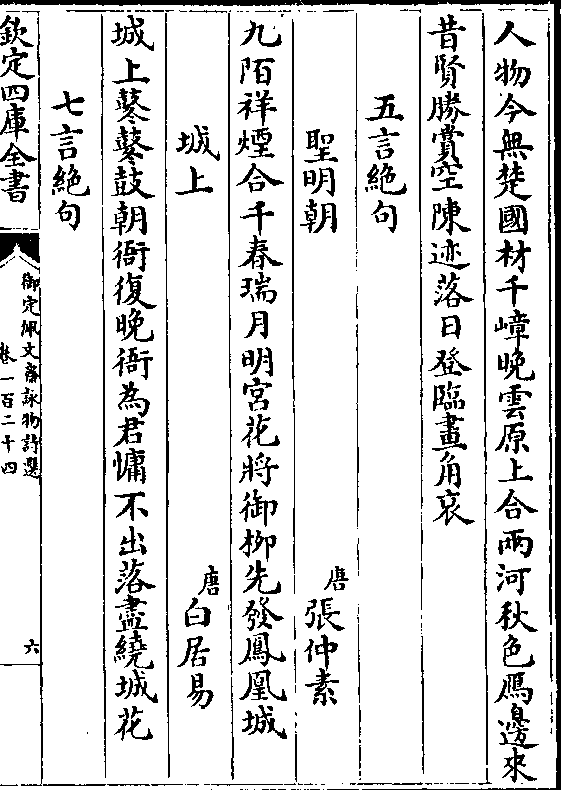 人物今無楚國材千嶂晚雲原上合兩河秋色鴈邊來
昔賢勝賞空陳迹落日登臨畫角哀
五言絶句
聖明朝　唐張仲素
九陌祥煙合千春瑞月明宮花將御柳先發鳳凰城
城上　唐白居易
城上鼕鼕鼓朝衙復晚衙為君慵不出落盡繞城花
七言絶句
欽定四庫全書
御定佩文齋詠物詩選
卷一百二十四
六